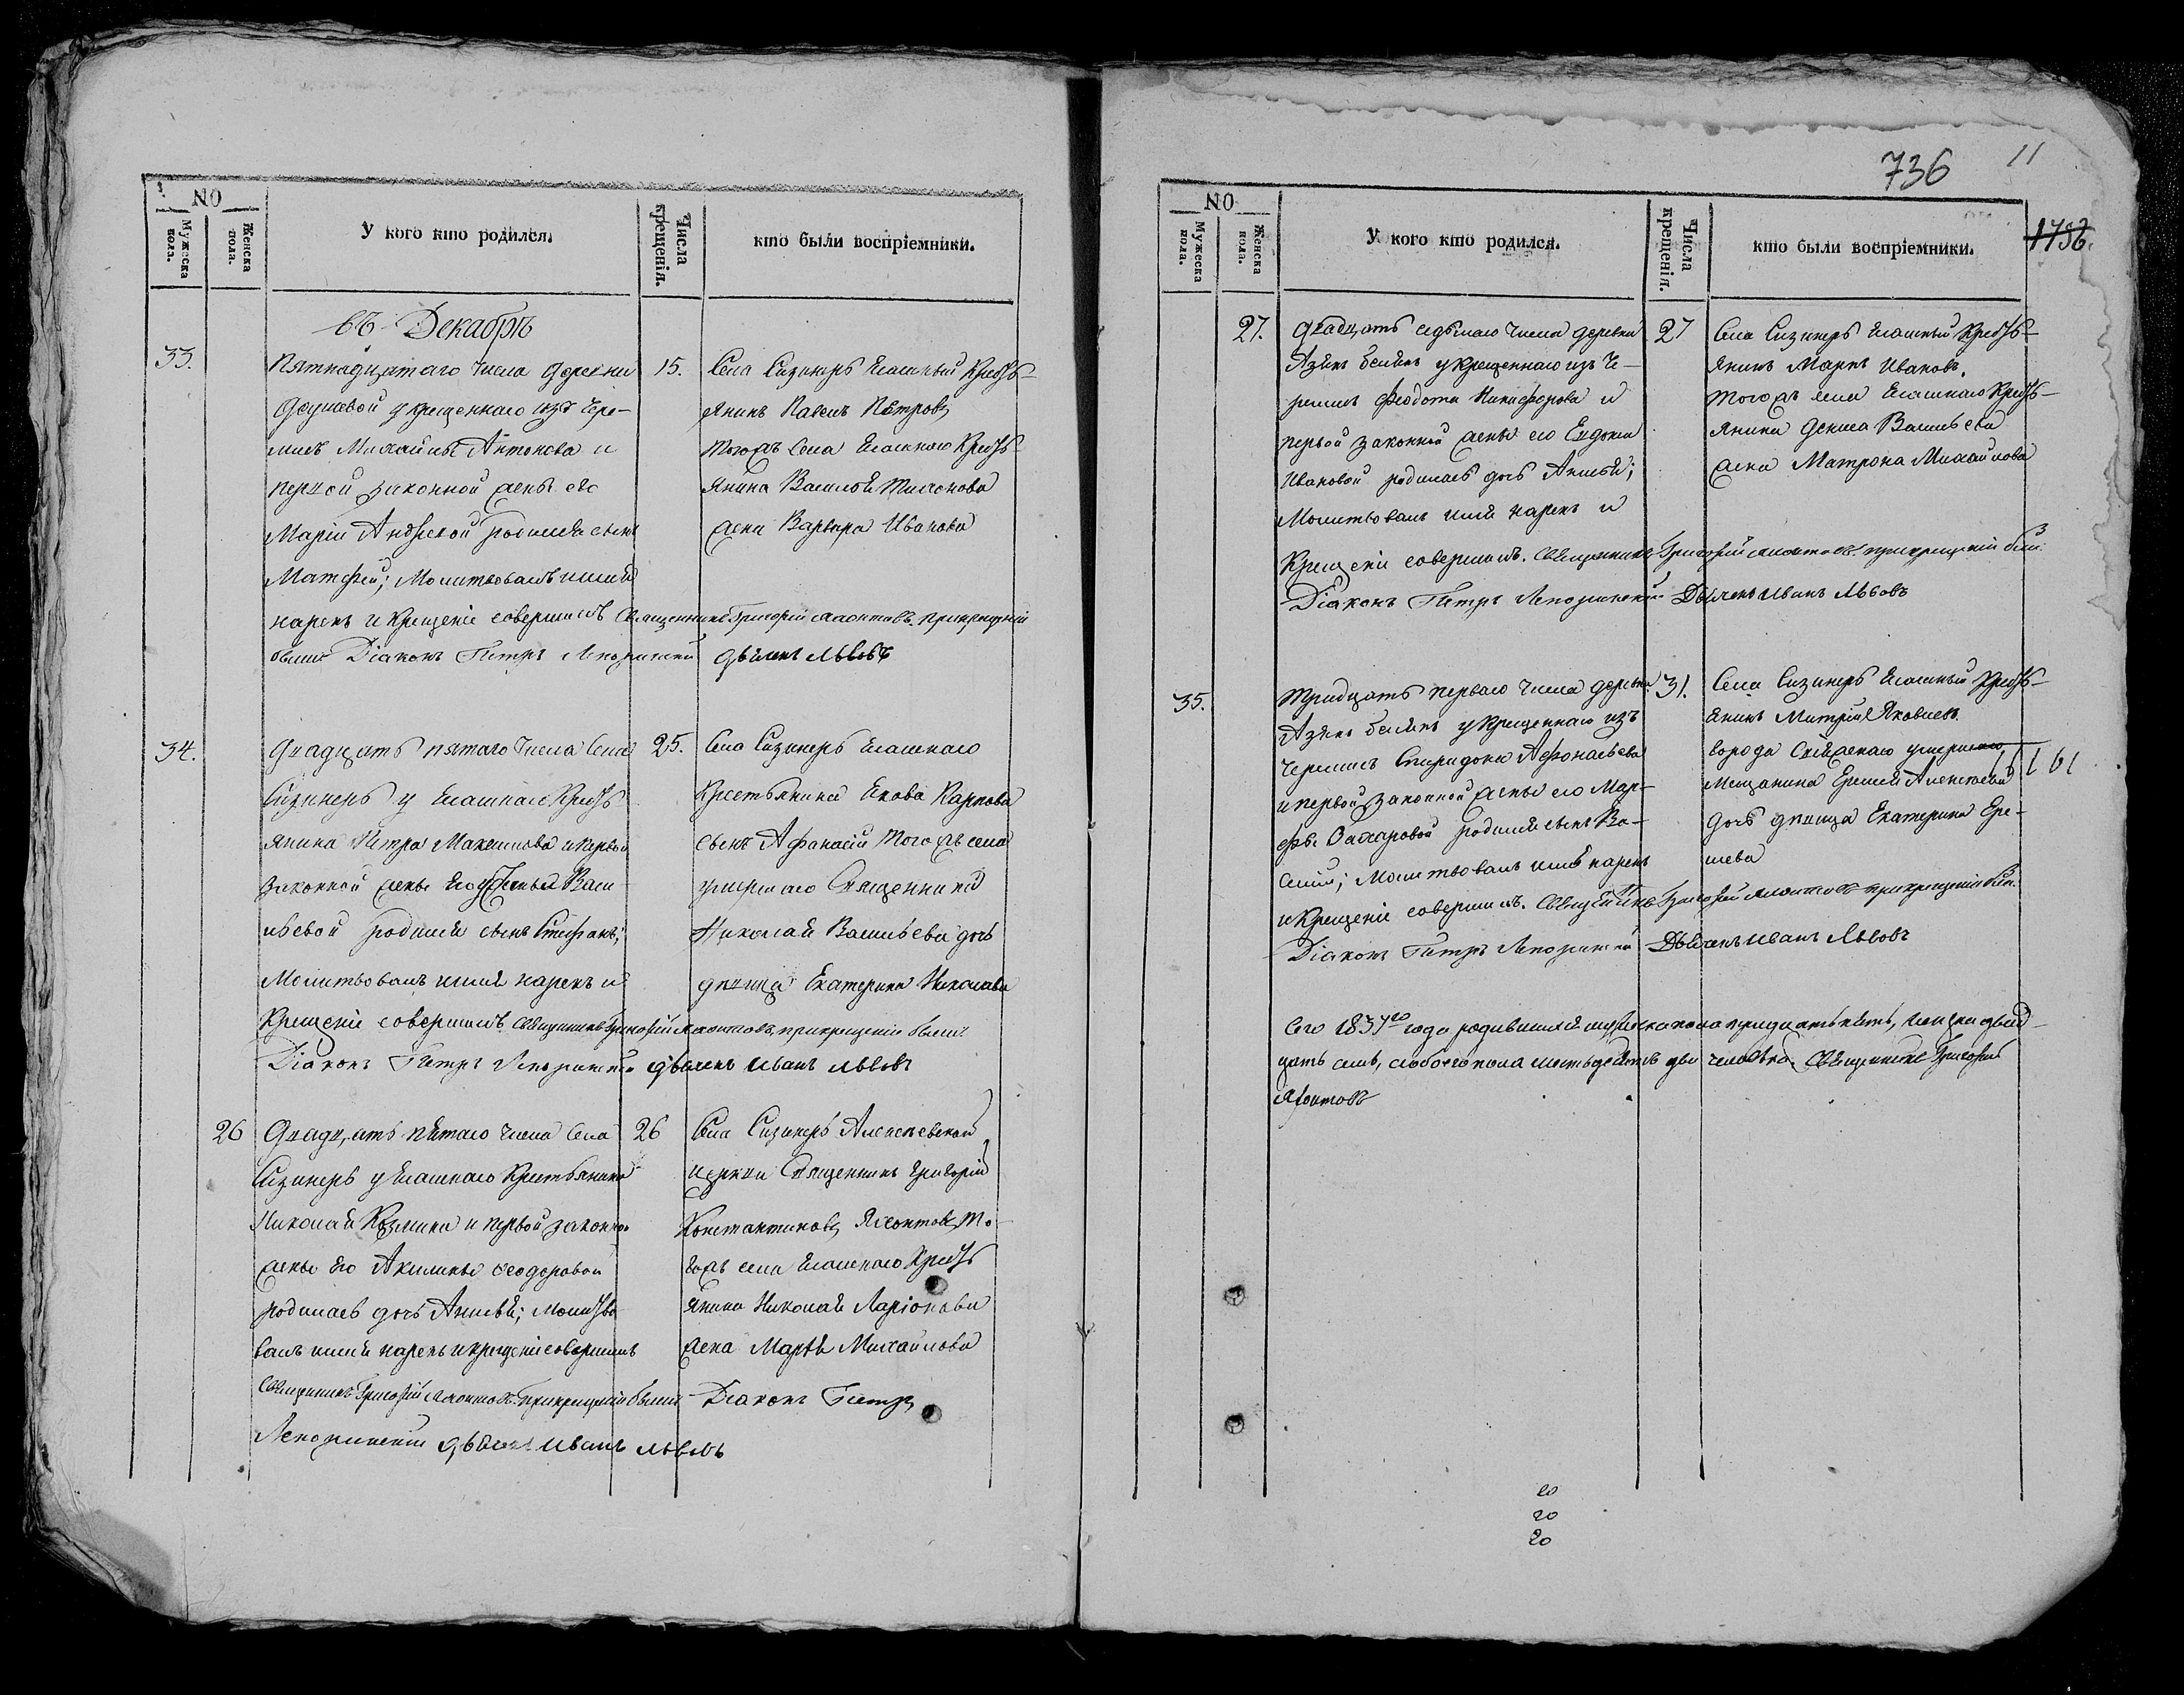 NO
Мужеска пола.
Женска пола.
У кого кто родился.
Числа крещенія.
кто были воспріемники.
въ Декабрѣ
33.
Пятнадцатаго числа деревни
у крещеннаго изъ Чере-
мисъ Михайлы Антонова и
первой законной жены его
Маріи Андреевой родился сынъ
Матфей; Молитвовалъ имя
нарекъ и крещеніе совершилъ Священникъ Григорій при крещеніи
были Діаконъ Петръ Лепоринскій дьячекъ Львовъ
15.
Села Сизнеръ ясашный кресть-
янинъ Павелъ Петровъ,
тогожъ села ясашнаго кресть-
янина Василья
жена Варвара Иванова
34.
Двадцать пятаго числа села
Сизнеръ у ясашнаго кресть-
янина Петра Максимова и первой
законной жены его Васи-
льевой родился сынъ Стефанъ;
Молитвовалъ имя нарекъ и
крещеніе совершилъ Священникъ Григорій при крещеніи были
Діаконъ Петръ Лепоринскій дьячекъ Иванъ Львовъ
25.
Села Сизнеръ ясашнаго
крестьянина Якова Карпова
сынъ Афанасій того жъ села
умершаго Священника
Николая Васильева дочь
дѣвица Екатерина Николаева
26
Двадцать пятаго числа села
Сизнеръ у ясашнаго крестьянина
Николая Козмина и первой законной
жены его Акилины Феодоровой
родилась дочь Анисья; молитво-
валъ имя нарекъ и крещеніе совершилъ
Священникъ Григорій при крещеніи были Діаконъ Петръ
Лепоринскій дьячекъ Иванъ Львовъ
26
Села Сизнеръ Алексѣевской
церкви Священникъ Григорій
Константиновъ то-
гожъ села ясашнаго кресть-
янина Николая Ларіонова
жена Марѳа Михайлова
736
11
1736.
NO
Мужеска пола.
Женска пола.
У кого кто родился.
Числа крещенія.
кто были воспріемники.
27.
Двадцать седьмаго числа деревни
у крещеннаго изъ Че-
ремисъ Феодота Никифорова и
первой законной жены его Евдокіи
Ивановой родилась дочь Анисья;
Молитвовалъ имя нарекъ и
крещеніе совершилъ. Священникъ Григорій при крещеніи были
Діаконъ Петръ Лепоринскій Дьячекъ Иванъ Львовъ
27
Села Сизнеръ ясашный кресть-
янинъ Маркъ Ивановъ,
тогожъ села ясашнаго кресть-
янина Дениса Васильева
жена Матрона Михайлова
35.
Тридцать перваго числа деревни
у крещеннаго изъ
Черемисъ Спиридона Афонасьева
и первой законной жены его Мар-
фы Захаровой родился сынъ Ва-
силій; Молитвовалъ имя нарекъ
и крещеніе совершилъ. Священникъ Григорій при крещеніи были
Діаконъ Петръ Лепоринскій Дьячекъ Иванъ Львовъ
31.
Села Сизнеръ ясашный кресть-
янинъ Митрій Яковлевъ
города Свіяжскаго умершаго
мещанина Еремея Алексѣева
дочь дѣвица Екатерина Ере-
меева
Сего 1837го года родившихся мужеска пола тридцать пять, женска двад-
цать семь, а обоего пола шестьдесятъ два человѣка. Священникъ Григорій
20
20
20